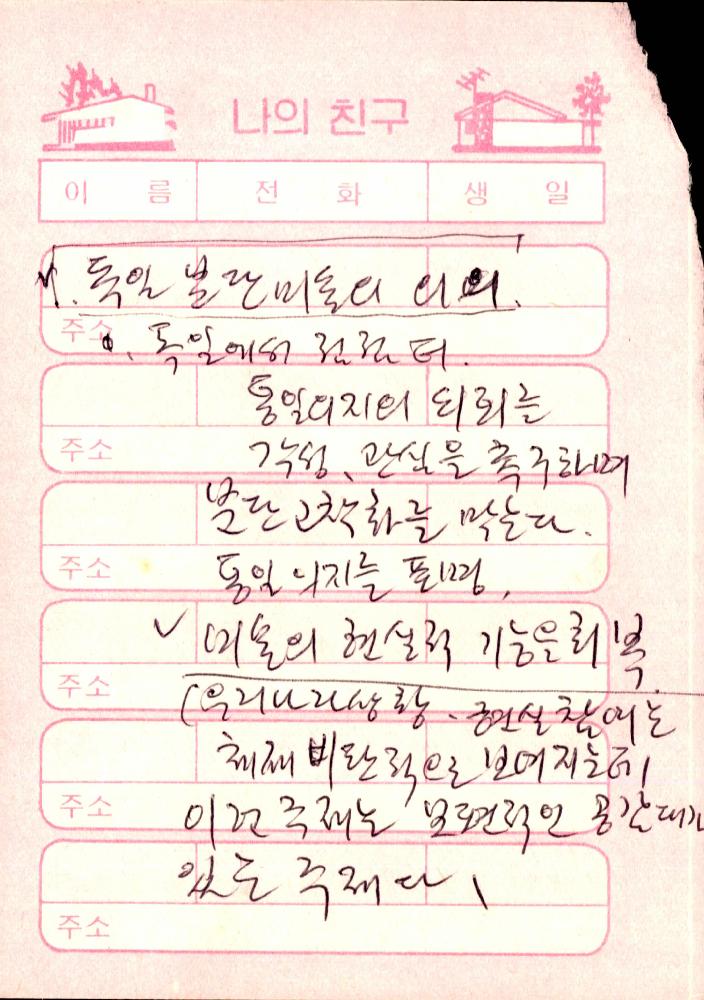 나의 친구
이 름 전 화 생 일
독일 분단미술의 의의.
주소
독일에서
통일의지의 의뢰를
주소 각성, 관심을 촉구하며
분단 고착화를 막는다.
주소 통일 의지를 표명,
미술의 현실적 기능을 회복.
주소
(우리나라상황 - 현실참여는
체제 비판적으로 보여지는데,
주소 이런 주제는 보편적인 공감대가
있는 주제다,
주소